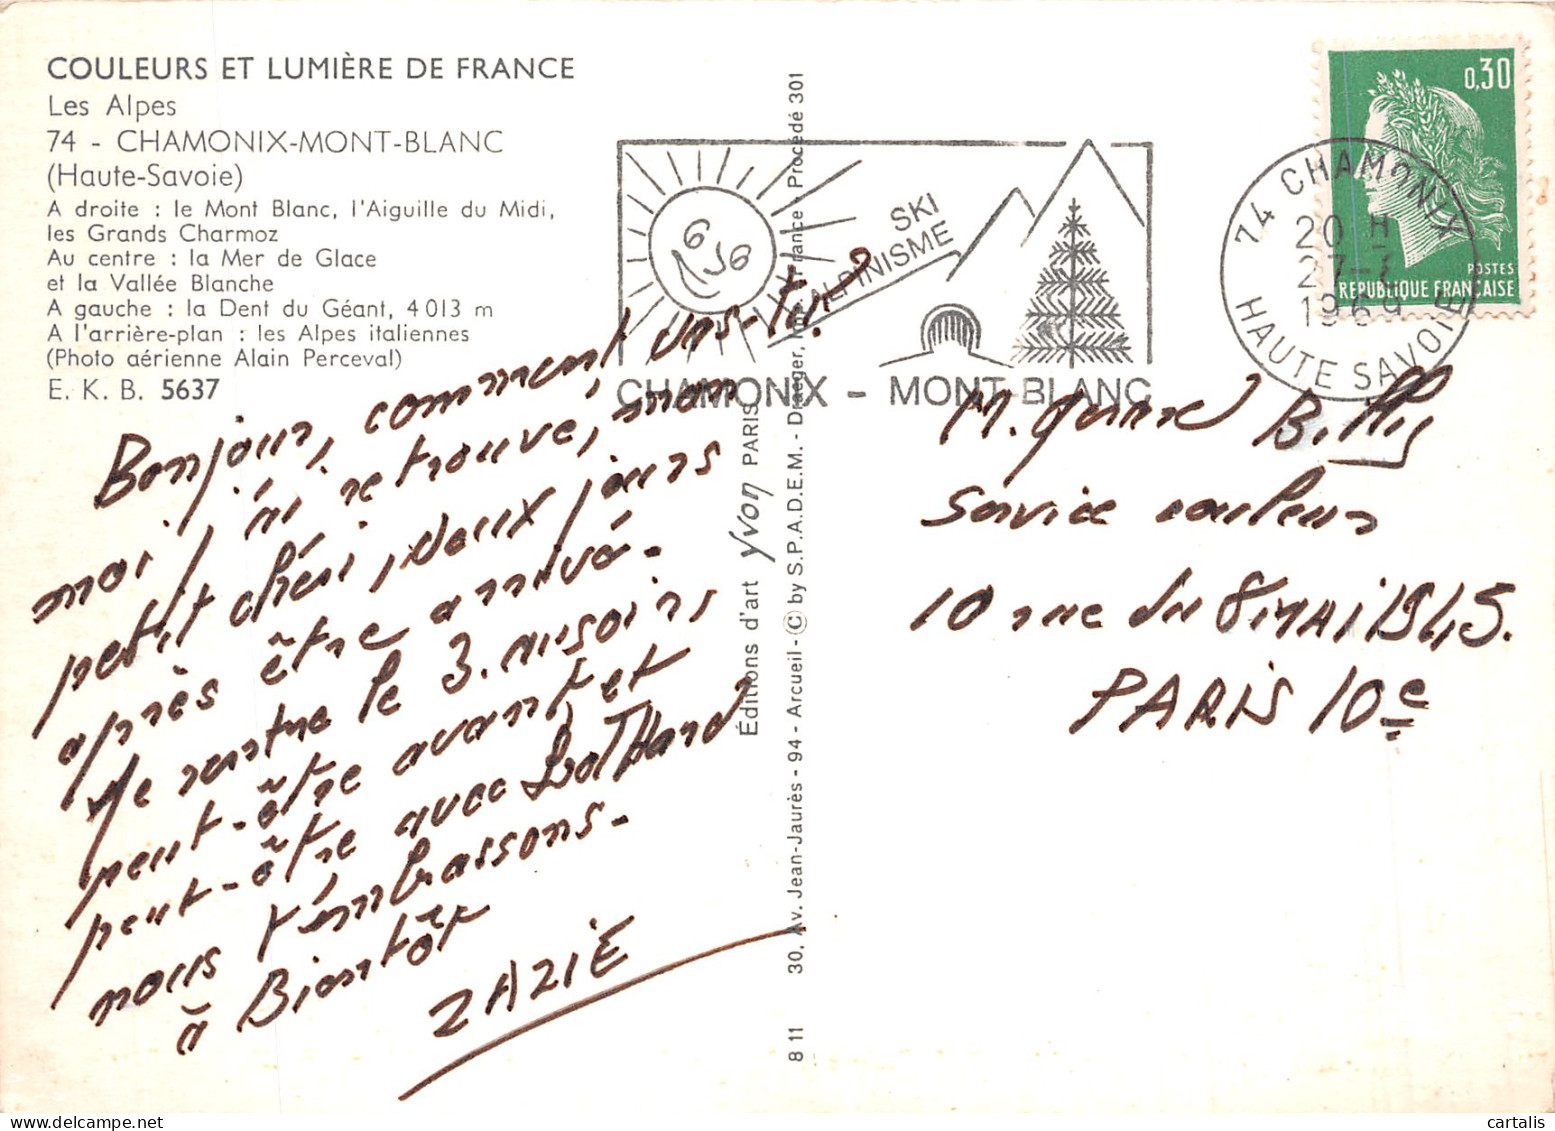 COULEURS ET LUMIÈRE DE FRANCE
Les Alpes
74 - CHAMONIX-MONT-BLANC
(Haute-Savoie)
A droite : le Mont Blanc, l'Aiguille du Midi,
les Grands Charmoz
Au centre : la Mer de Glace
et la Vallée Blanche
A gauche : la Dent du Géant, 4 013 m
A l'arrière-plan : les Alpes italiennes
(Photo aérienne Alain Perceval)
E. K. B. 5637
Bonjour, comment vas-tu?
moi j'ai retrouvé, mon
petit chéri, deux jours
après être arrivé-
Je rentre le 3. au soir,
peut-être avant et
peut-être avec
nous t'embrassons-
à Bientôt
ZAZIE
Éditions d'art yvon PARIS
30, Av. Jean-Jaurès - 94 - Arcueil - © by S.P.A.D.E.M. - Draeger, France - Procédé 301
8 11
SKI
ALPINISME
CHAMONIX - MONT-BLANC
74 CHAMONIX
20 H
27-
1969
HAUTE SAVOIE
0,30
POSTES
REPUBLIQUE FRANÇAISE
M.
Service couleur
10 rue du 8 MAI 1945.
PARIS 10e
cartalis